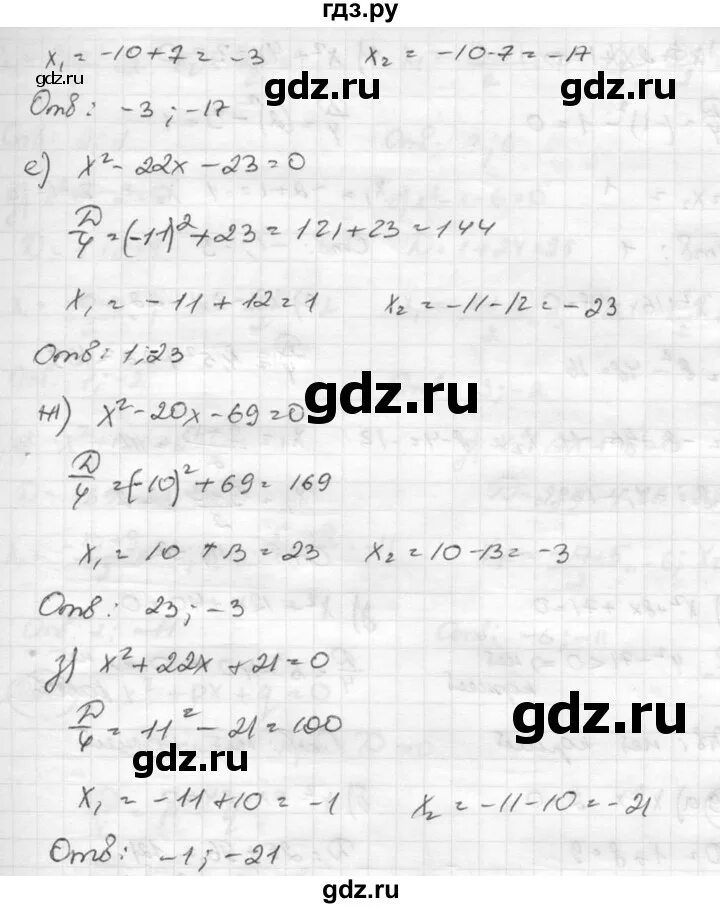 гдз.ру
x₁ = -10+7 = -3 x₂ = -10-7 = -17
gdz.ru gdz.ru
Отв: -3; -17
е) x² - 22x - 23 = 0
Д/4 = (-11)² + 23 = 121 + 23 = 144
x₁ = -11 + 12 = 1 x₂ = -11 - 12 = -23
Отв: 1; -23
gdz.ru
ж) x² - 20x - 69 = 0
Д/4 = (-10)² + 69 = 169
x₁ = 10 + 13 = 23 x₂ = 10 - 13 = -3
gdz.ru
Отв: 23; -3
з) x² + 22x + 21 = 0
gdz.ru
Д/4 = 11² - 21 = 100
gdz.ru
x₁ = -11 + 10 = -1 x₂ = -11 - 10 = -21
Отв: -1; -21
gdz.ru